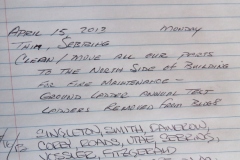 APRIL 15, 2013 MONDAY
THIM, SEBRING
CLEAN / MOVE ALL OUR POSTS
TO THE NORTH SIDE OF BUILDING
FOR FIRE MAINTENANCE -
GROUND LADDER ANNUAL TEST
LADDERS REMOVED FROM BLDG
SINGLETON, SMITH, DAMERON,
COREY, ROADS, UTHE, SEBRING,
VOSSLER, FITZGERALD